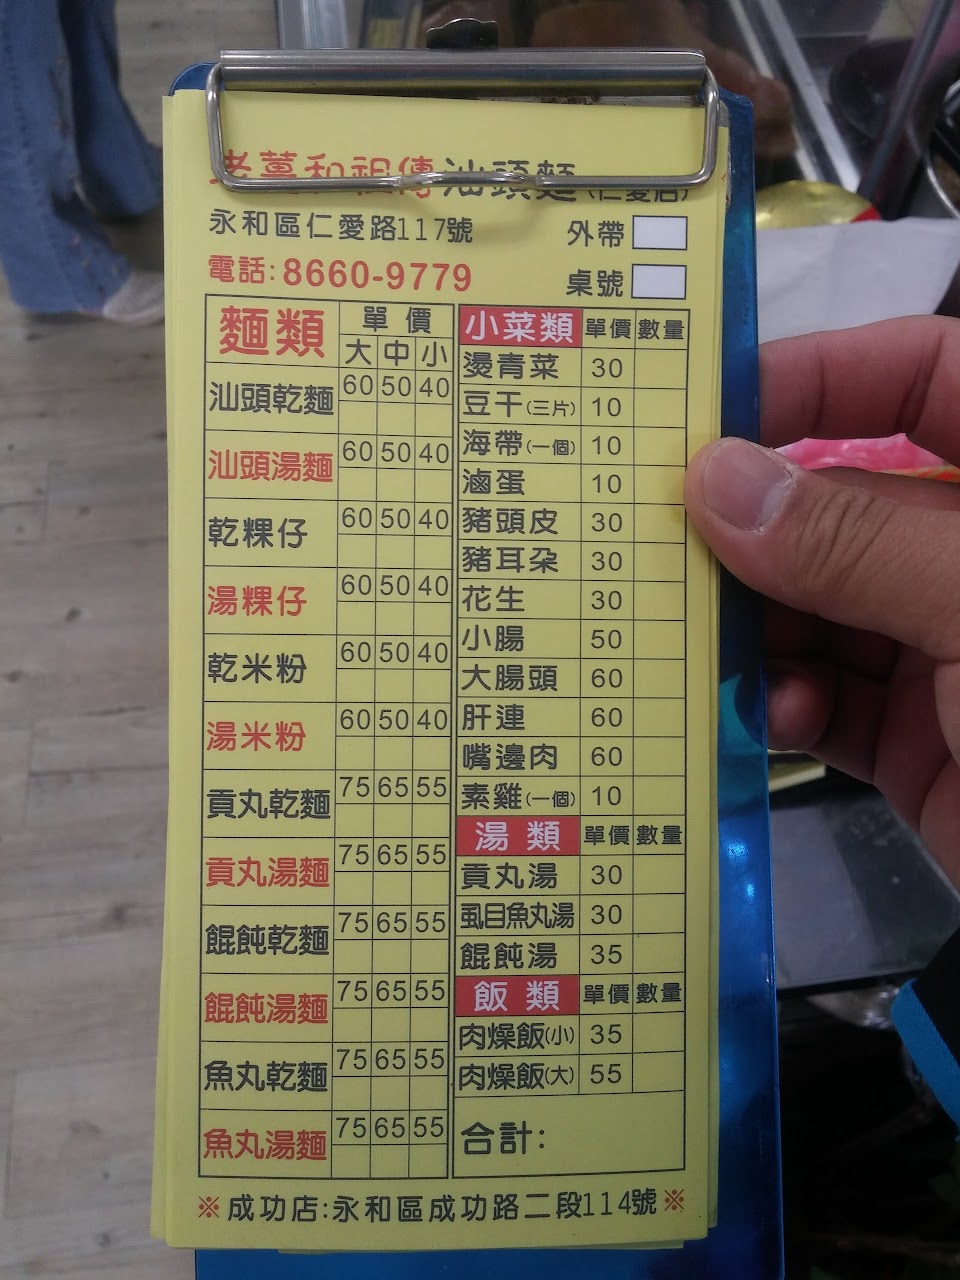 老萬和祖傳汕頭麵(仁愛店)
永和區仁愛路117號
外帶
電話:8660-9779
桌號
麵類 單價
大 中 小
汕頭乾麵 60 50 40
汕頭湯麵 60 50 40
乾粿仔 60 50 40
湯粿仔 60 50 40
乾米粉 60 50 40
湯米粉 60 50 40
貢丸乾麵 75 65 55
貢丸湯麵 75 65 55
餛飩乾麵 75 65 55
餛飩湯麵 75 65 55
魚丸乾麵 75 65 55
魚丸湯麵 75 65 55
小菜類 單價 數量
燙青菜 30
豆干(三片) 10
海帶(一個) 10
滷蛋 10
豬頭皮 30
豬耳朵 30
花生 30
小腸 50
大腸頭 60
肝連 60
嘴邊肉 60
素雞(一個) 10
湯類 單價 數量
貢丸湯 30
虱目魚丸湯 30
餛飩湯 35
飯類 單價 數量
肉燥飯(小) 35
肉燥飯(大) 55
合計:
※成功店:永和區成功路二段114號※